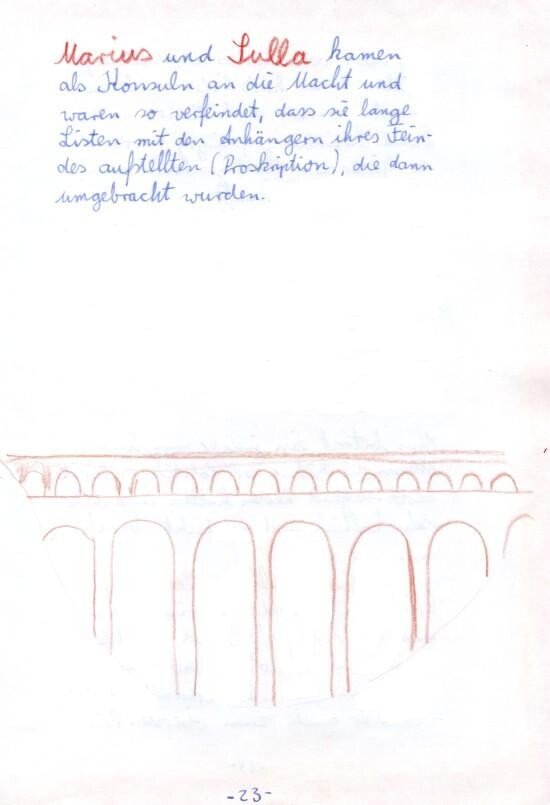 Marius und Sulla kamen
als Konsuln an die Macht und
waren so verfeindet, dass sie lange
Listen mit den Anhängern ihres Fein-
des aufstellten (Proskription), die dann
umgebracht wurden.
-23-